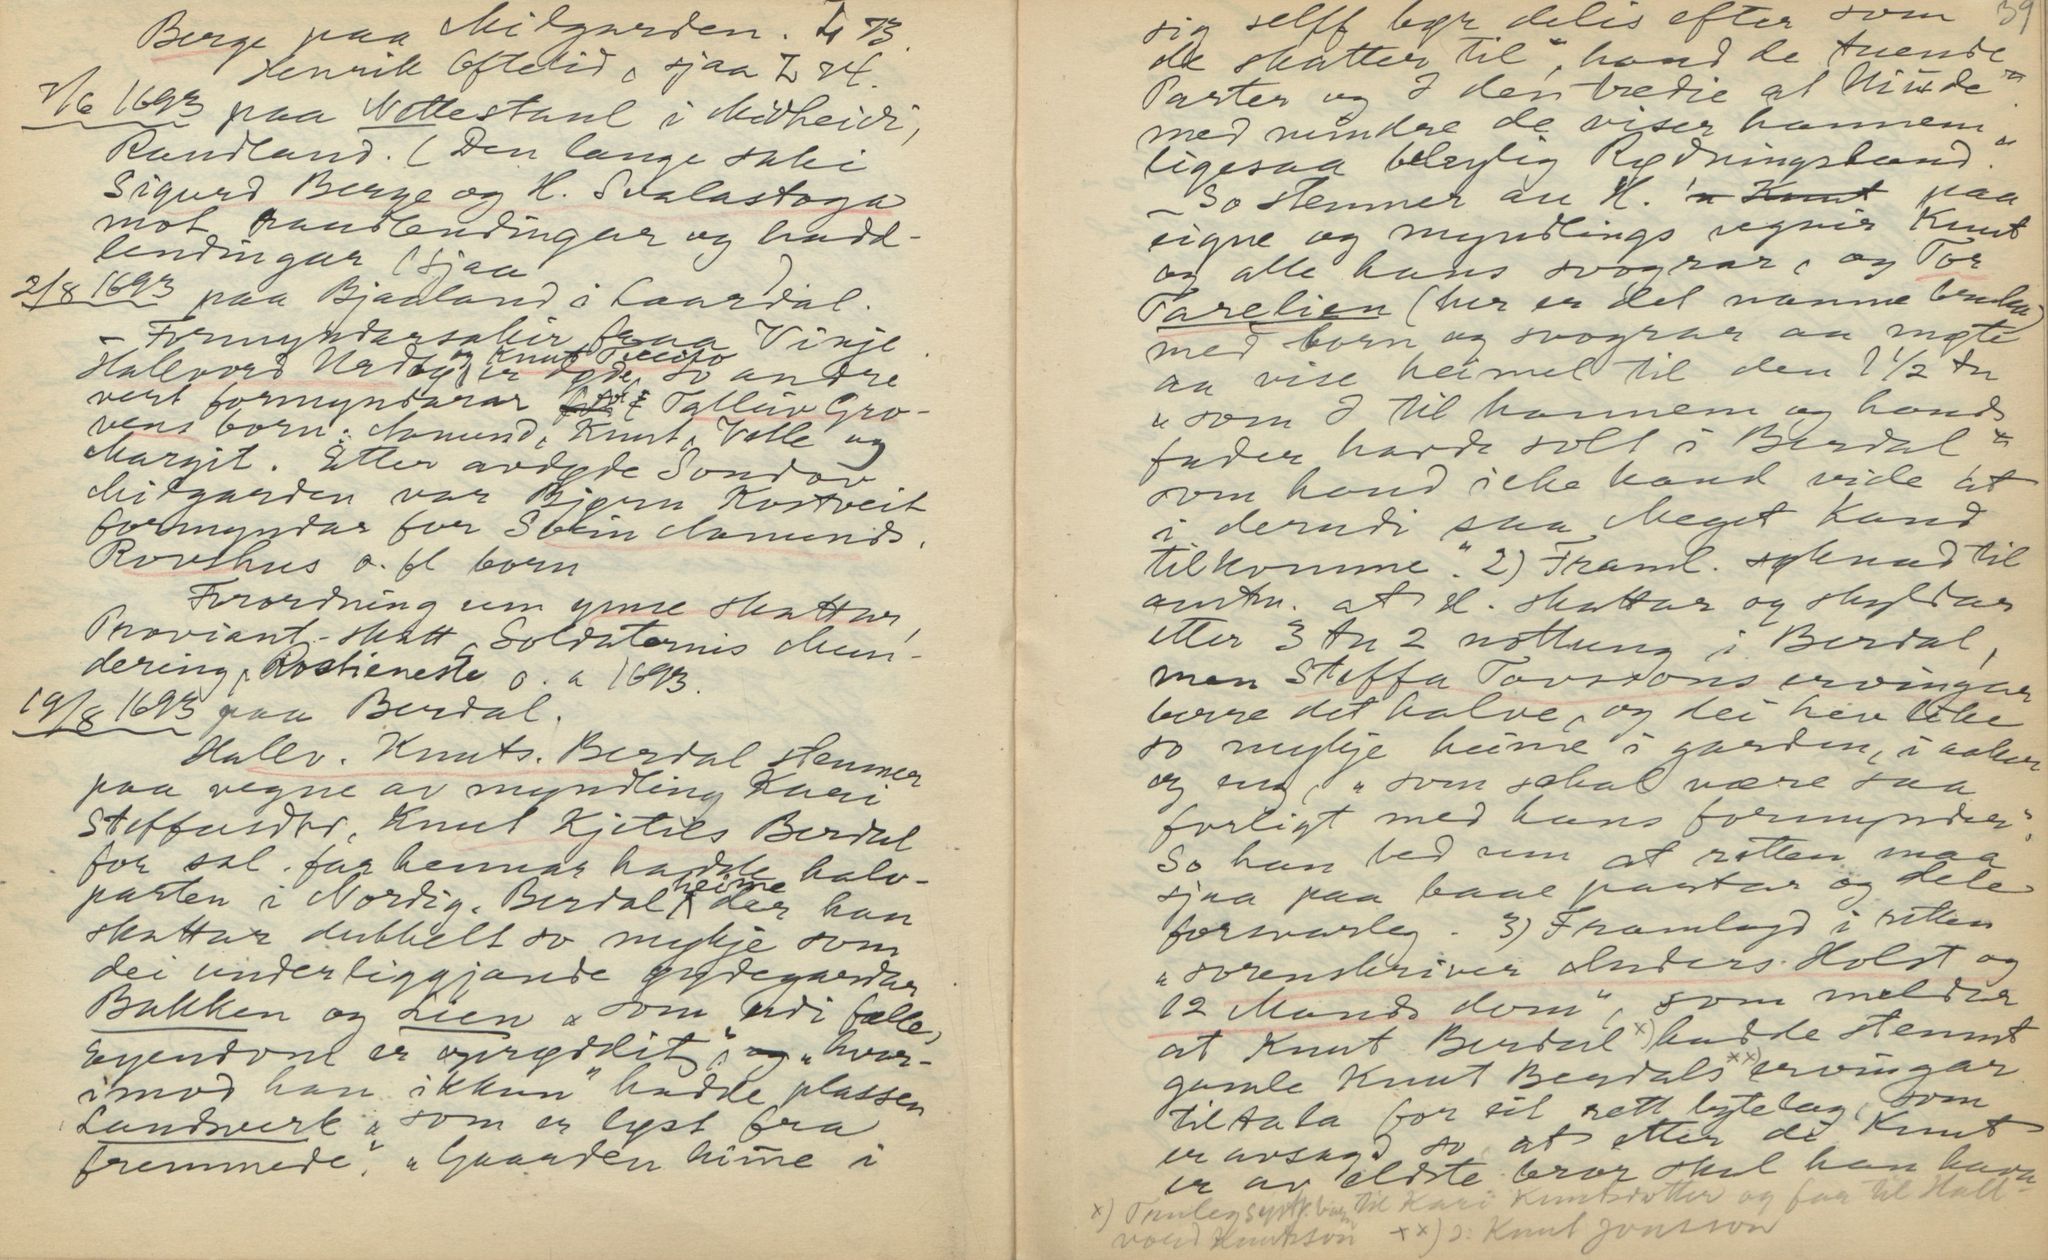 Berge paa Midgarden. L 73.
Henrik Oftelid, sjaa L 24.
7/6 1693 paa Nottestaul i Midheidi,
Raudland. (Den lange saki
Sigurd Berge og H. Svalastoga
mot raudlendingar og hadd-
lendingar (sjaa )
2/8 1693 paa Bjaaland i Laardal.
- Formyndarsakir fraa Vinje.
Hallvord Urdbø og Knut
er døde, so andre
vert formyndarar for Tallaiv Gro-
vens born: Aamund, Knut, Vetle og
Margit. Etter avdøde Sondov
Midgarden var Bjørn Kostveit
formyndar for Svein Aamunds.
Rovshus o. fl born
Forordning um ymse skattar,
Proviant-skatt, Soldaternis Mun-
dering, Rostieneste o. a 1693.
19/8 1693 paa Berdal.
Hallv. Knuts. Berdal stemner
paa vegne av myndling Kari
Steffensdtr, Knut Kjetils Berdal
for sal. far hennar hadde halv-
parten i Nordig. Berdal heime der han
skattar dubbelt so mykje som
dei underliggjande øydegardar
Bakken og Lien "som udi fælles
Eyendom er oprøddit", og "hvor-
imod han ikkun" hadde plassen
Landverk "som er lyst fra
fremmede". "Gaarden hime i
39
sig selff bør delis efter som
de skatter til", hand de tuende
Parter og I den tredie at Niude"
med mindre de viser hannem
ligesaa belejlig Rødningsland."
- So stemner au H. paa
eigne og myndlings vegnir Knut
og alle hans svograr, og Tor
Tarelien (her er det namne bruka)
med born og svograr aa møte
aa vise heimel til den 1 1/2 tn
"som I til hannem og hands
fader havde solt i Berdal"
som hand icke kand vide at
i derudi saa Meget Kand
tilkomme". 2) Framl. søknad til
amtm. at H. skattar og skyldar
etter 3 tn 2 nottung i Berdal,
men Steffa Tovsons ervingar
berre det halve, og dei hev like
so mykje heime i garden, i aaker
og eng, "som schal være saa
forligt med hans formynder".
So han bed um at retten maa
sjaa paa baae partar og dele
forsvarleg. 3) Framlagd i retten
"sorenskriver Anders Holst og
12 Mands dom", som meldar
at Knut Berdal x) hadde stemnt
gamle Knut Berdals xx) ervingar
til tala for eit rett bytelag, som
er avsagd so, at etter di Knut
er av eldste bror skal han hava
x) Truleg til Kari Knutsdotter og far til Hall-
vord Knutsson xx) ɔ: Knut Jonsson